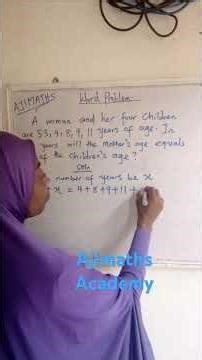 AJIMATHS Word Problem
A woman and her four children
are 53, 4, 8, 9, 11 years of age. In
years will the mother's age equals
of the children's age?
Soln
number of years be x
+ x = 4+8+9+11+
Ajimaths
Academy